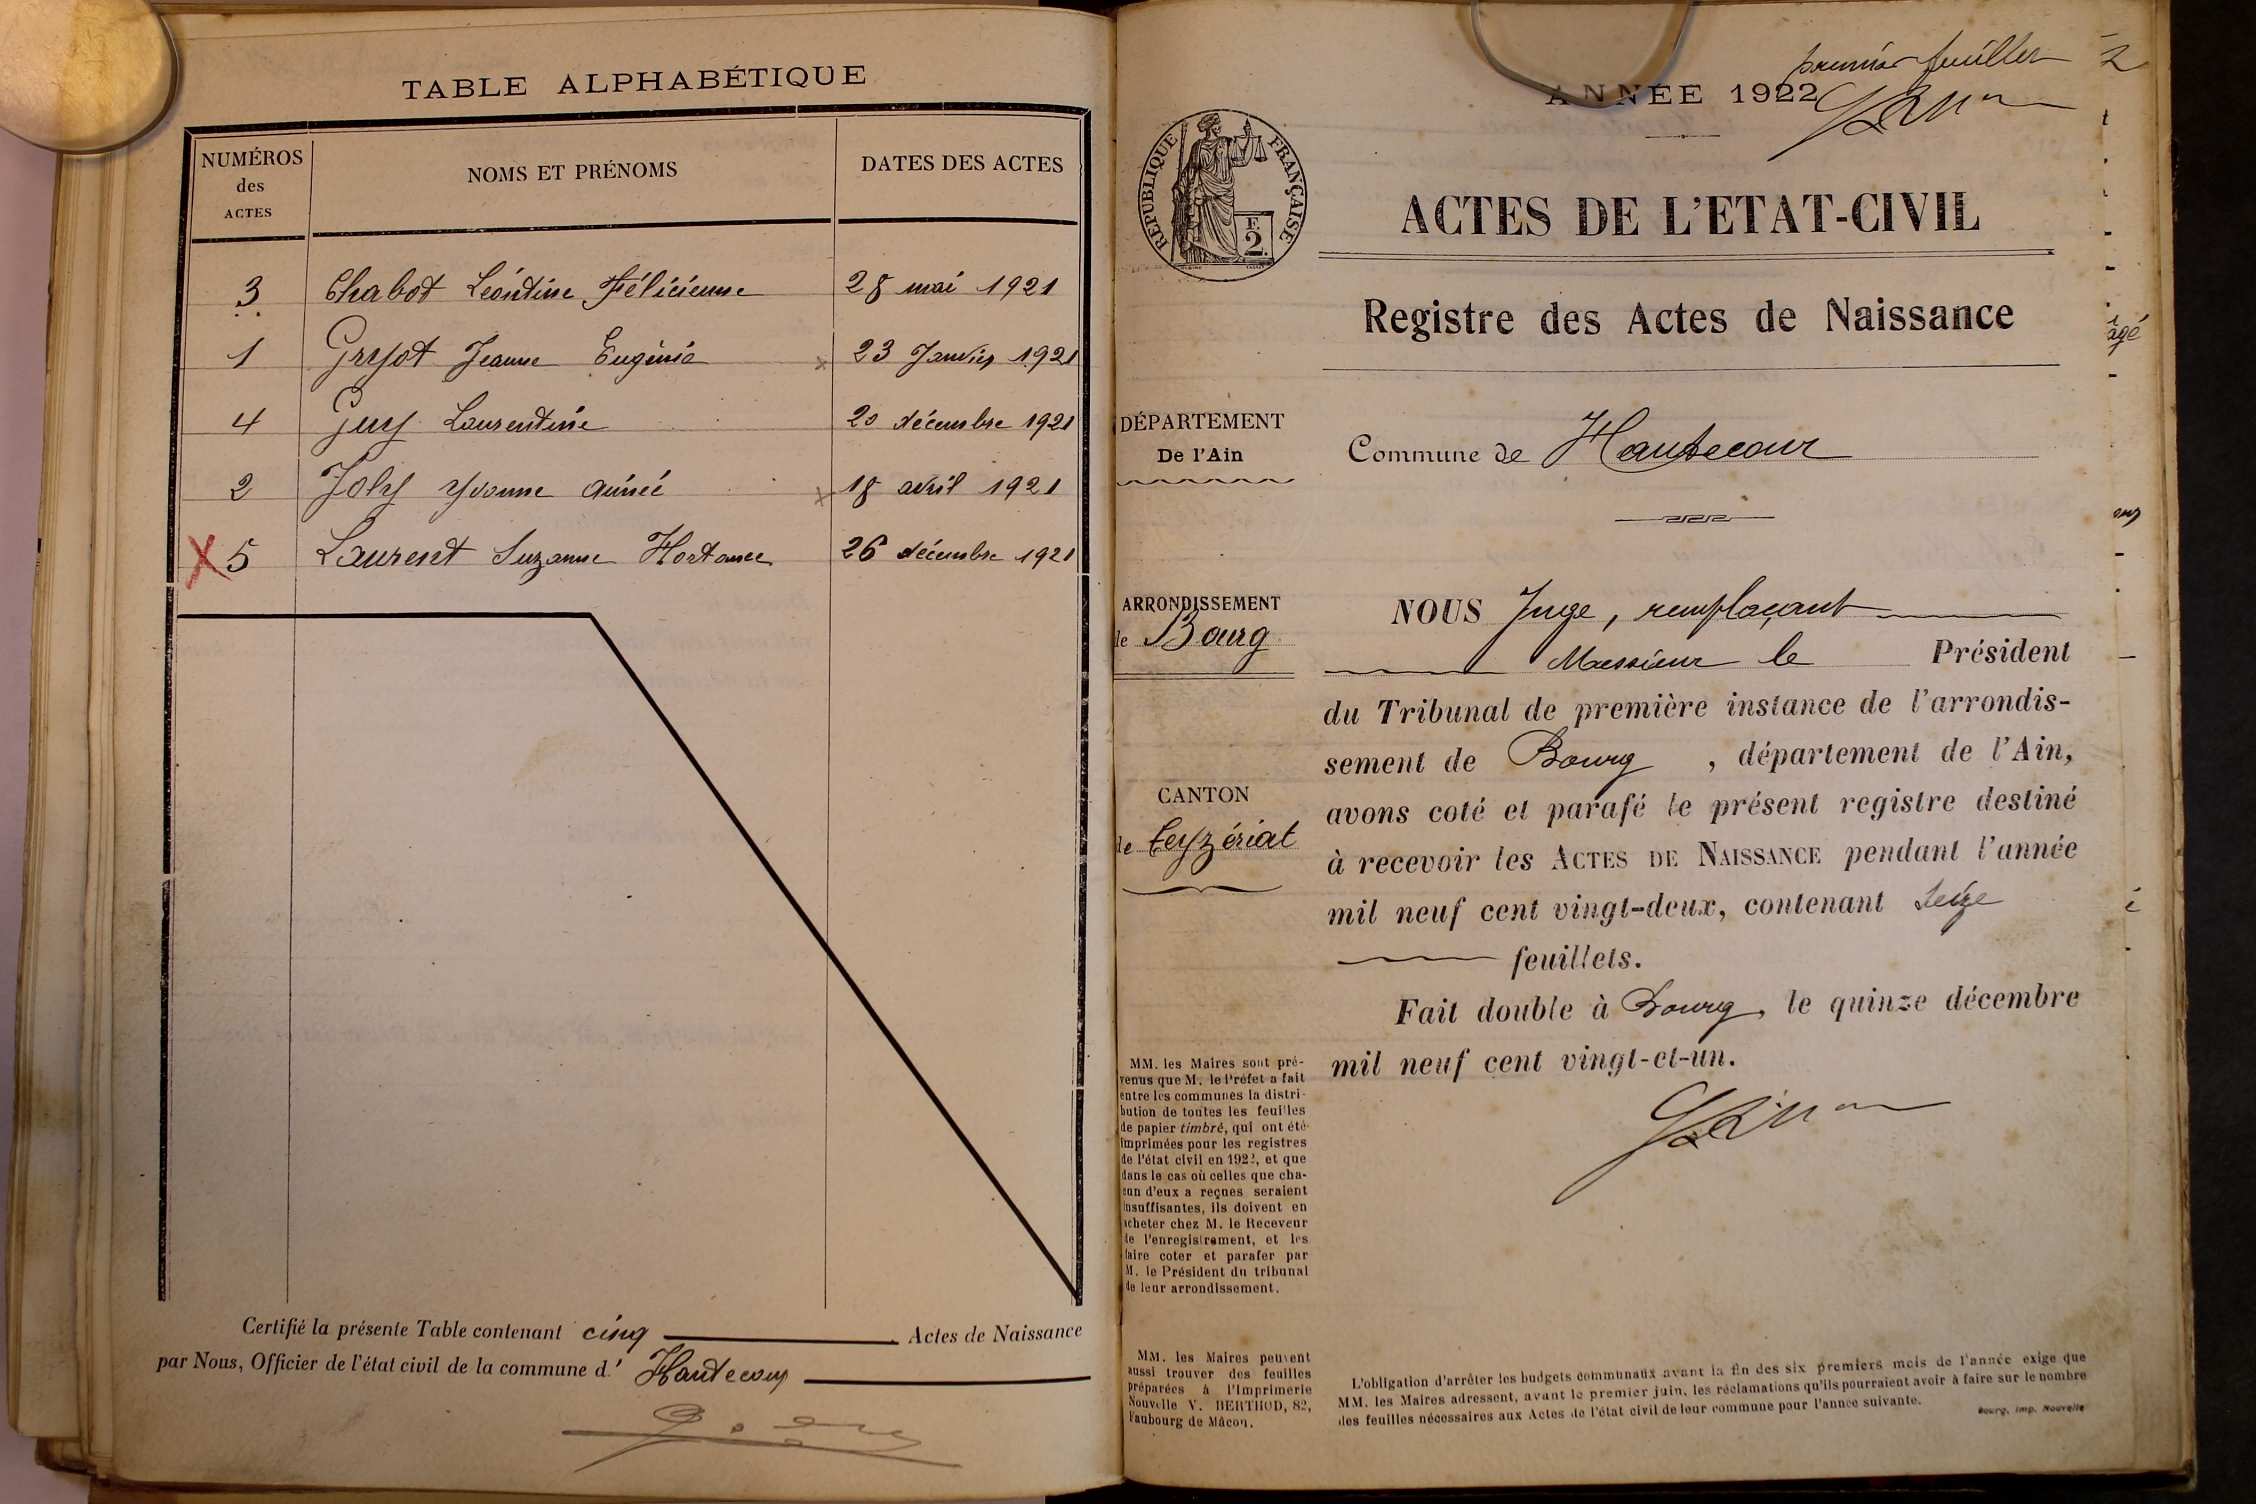 TABLE ALPHABÉTIQUE
NUMÉROS
des
ACTES
NOMS ET PRÉNOMS
DATES DES ACTES
3 Chabot Léontine Félicienne 28 mai 1921
1 Gryot Jeanne Eugénie x 23 Janvier 1921
4 Guy Laurentine 20 décembre 1921
2 Joly Yvonne Aimée x 18 avril 1921
X 5 Laurent Suzanne Hortance 26 décembre 1921
Certifié la présente Table contenant cinq Actes de Naissance
par Nous, Officier de l'état civil de la commune d' Hautecour
premier feuillet
2
ANNÉE 1922
RÉPUBLIQUE FRANÇAISE
F.
2.
ACTES DE L'ETAT-CIVIL
Registre des Actes de Naissance
DÉPARTEMENT
De l'Ain
Commune de Hautecour
ARRONDISSEMENT
de Bourg
CANTON
de Ceyzériat
NOUS Juge, remplaçant
Monsieur le Président
du Tribunal de première instance de l'arrondis-
sement de Bourg, département de l'Ain,
avons coté et parafé le présent registre destiné
à recevoir les ACTES DE NAISSANCE pendant l'année
mil neuf cent vingt-deux, contenant seize
feuillets.
Fait double à Bourg, le quinze décembre
mil neuf cent vingt-et-un.
MM. les Maires sont pré-
venus que M. le Préfet a fait
entre les communes la distri-
bution de toutes les feuilles
de papier timbré, qui ont été
imprimées pour les registres
de l'état civil en 1922, et que
dans le cas où celles que cha-
cun d'eux a reçues seraient
insuffisantes, ils doivent en
acheter chez M. le Receveur
de l'enregistrement, et les
faire coter et parafer par
M. le Président du tribunal
de leur arrondissement.
MM. les Maires peuvent
aussi trouver des feuilles
préparées à l'Imprimerie
Nouvelle V. BERTHOD, 82,
Faubourg de Mâcon.
L'obligation d'arrêter les budgets communaux avant la fin des six premiers mois de l'année exige que
MM. les Maires adressent, avant le premier juin, les réclamations qu'ils pourraient avoir à faire sur le nombre
des feuilles nécessaires aux Actes de l'état civil de leur commune pour l'année suivante.
Bourg, Imp. Nouvelle
âgé